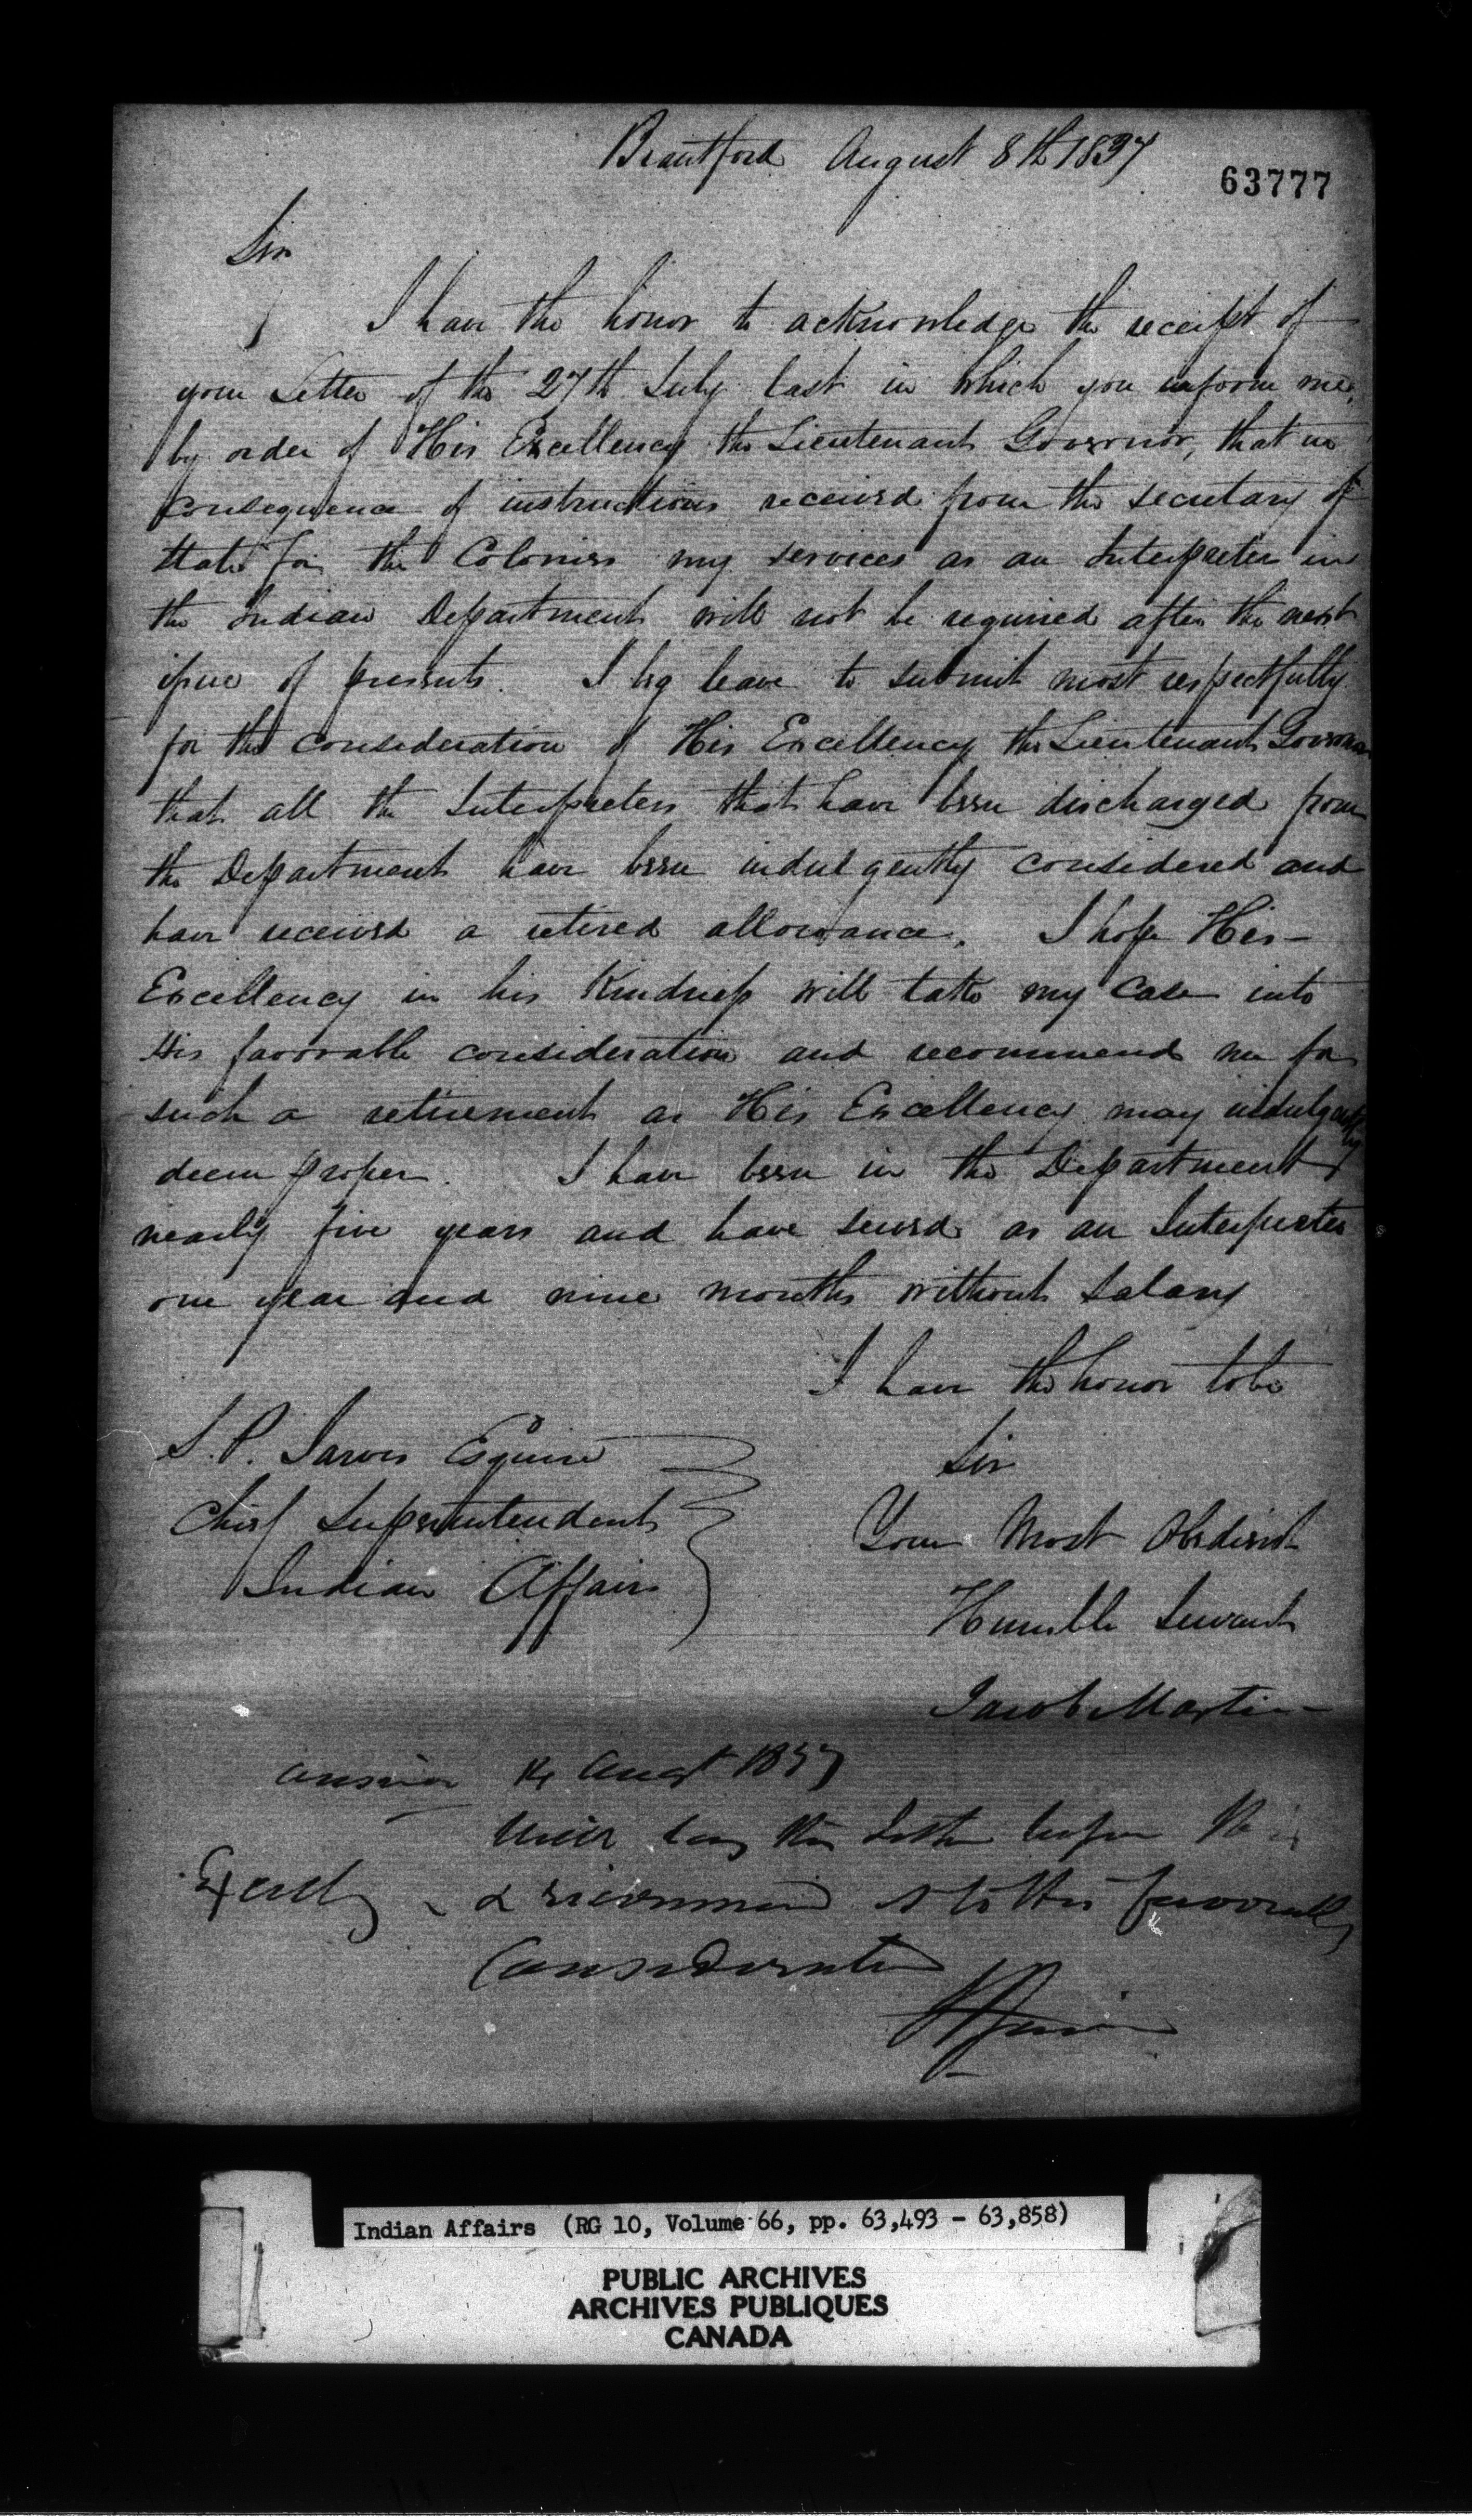 Brantford August 8th 1837
63777
Sir
I have the honor to acknowledge the receipt of
your Letter of the 27th July last in which you inform me,
by order of His Excellency the Lieutenant Governor, that in
consequence of instructions received from the secretary of
State for the Colonies my services as an Interpreter in
the Indian Department will not be required after the next
issue of presents. I beg leave to submit most respectfully
for the consideration of His Excellency the Lieutenant Governor
that all the Interpreters that have been discharged from
the Department have been indulgently considered and
have received a retired allowance. I hope His
Excellency in his Kindness will take my Case into
His favorable consideration and recommend me for
such a retirement as His Excellency may indulgently
deem proper. I have been in the Department
nearly five years and have served as an Interpreter
one year and nine months without Salary
I have the honor to be
Sir
Your Most Obedient
Humble Servant
Jacob Martin
S. P. Jarvis Esquire
Chief Superintendent
Indian Affairs
answer 14 Augt 1837
Will lay this Letter before His
Excelly & recommend it to His favorable
Consideration
SPJarvis
Indian Affairs (RG 10, Volume 66, pp. 63,493 - 63,858)
PUBLIC ARCHIVES
ARCHIVES PUBLIQUES
CANADA